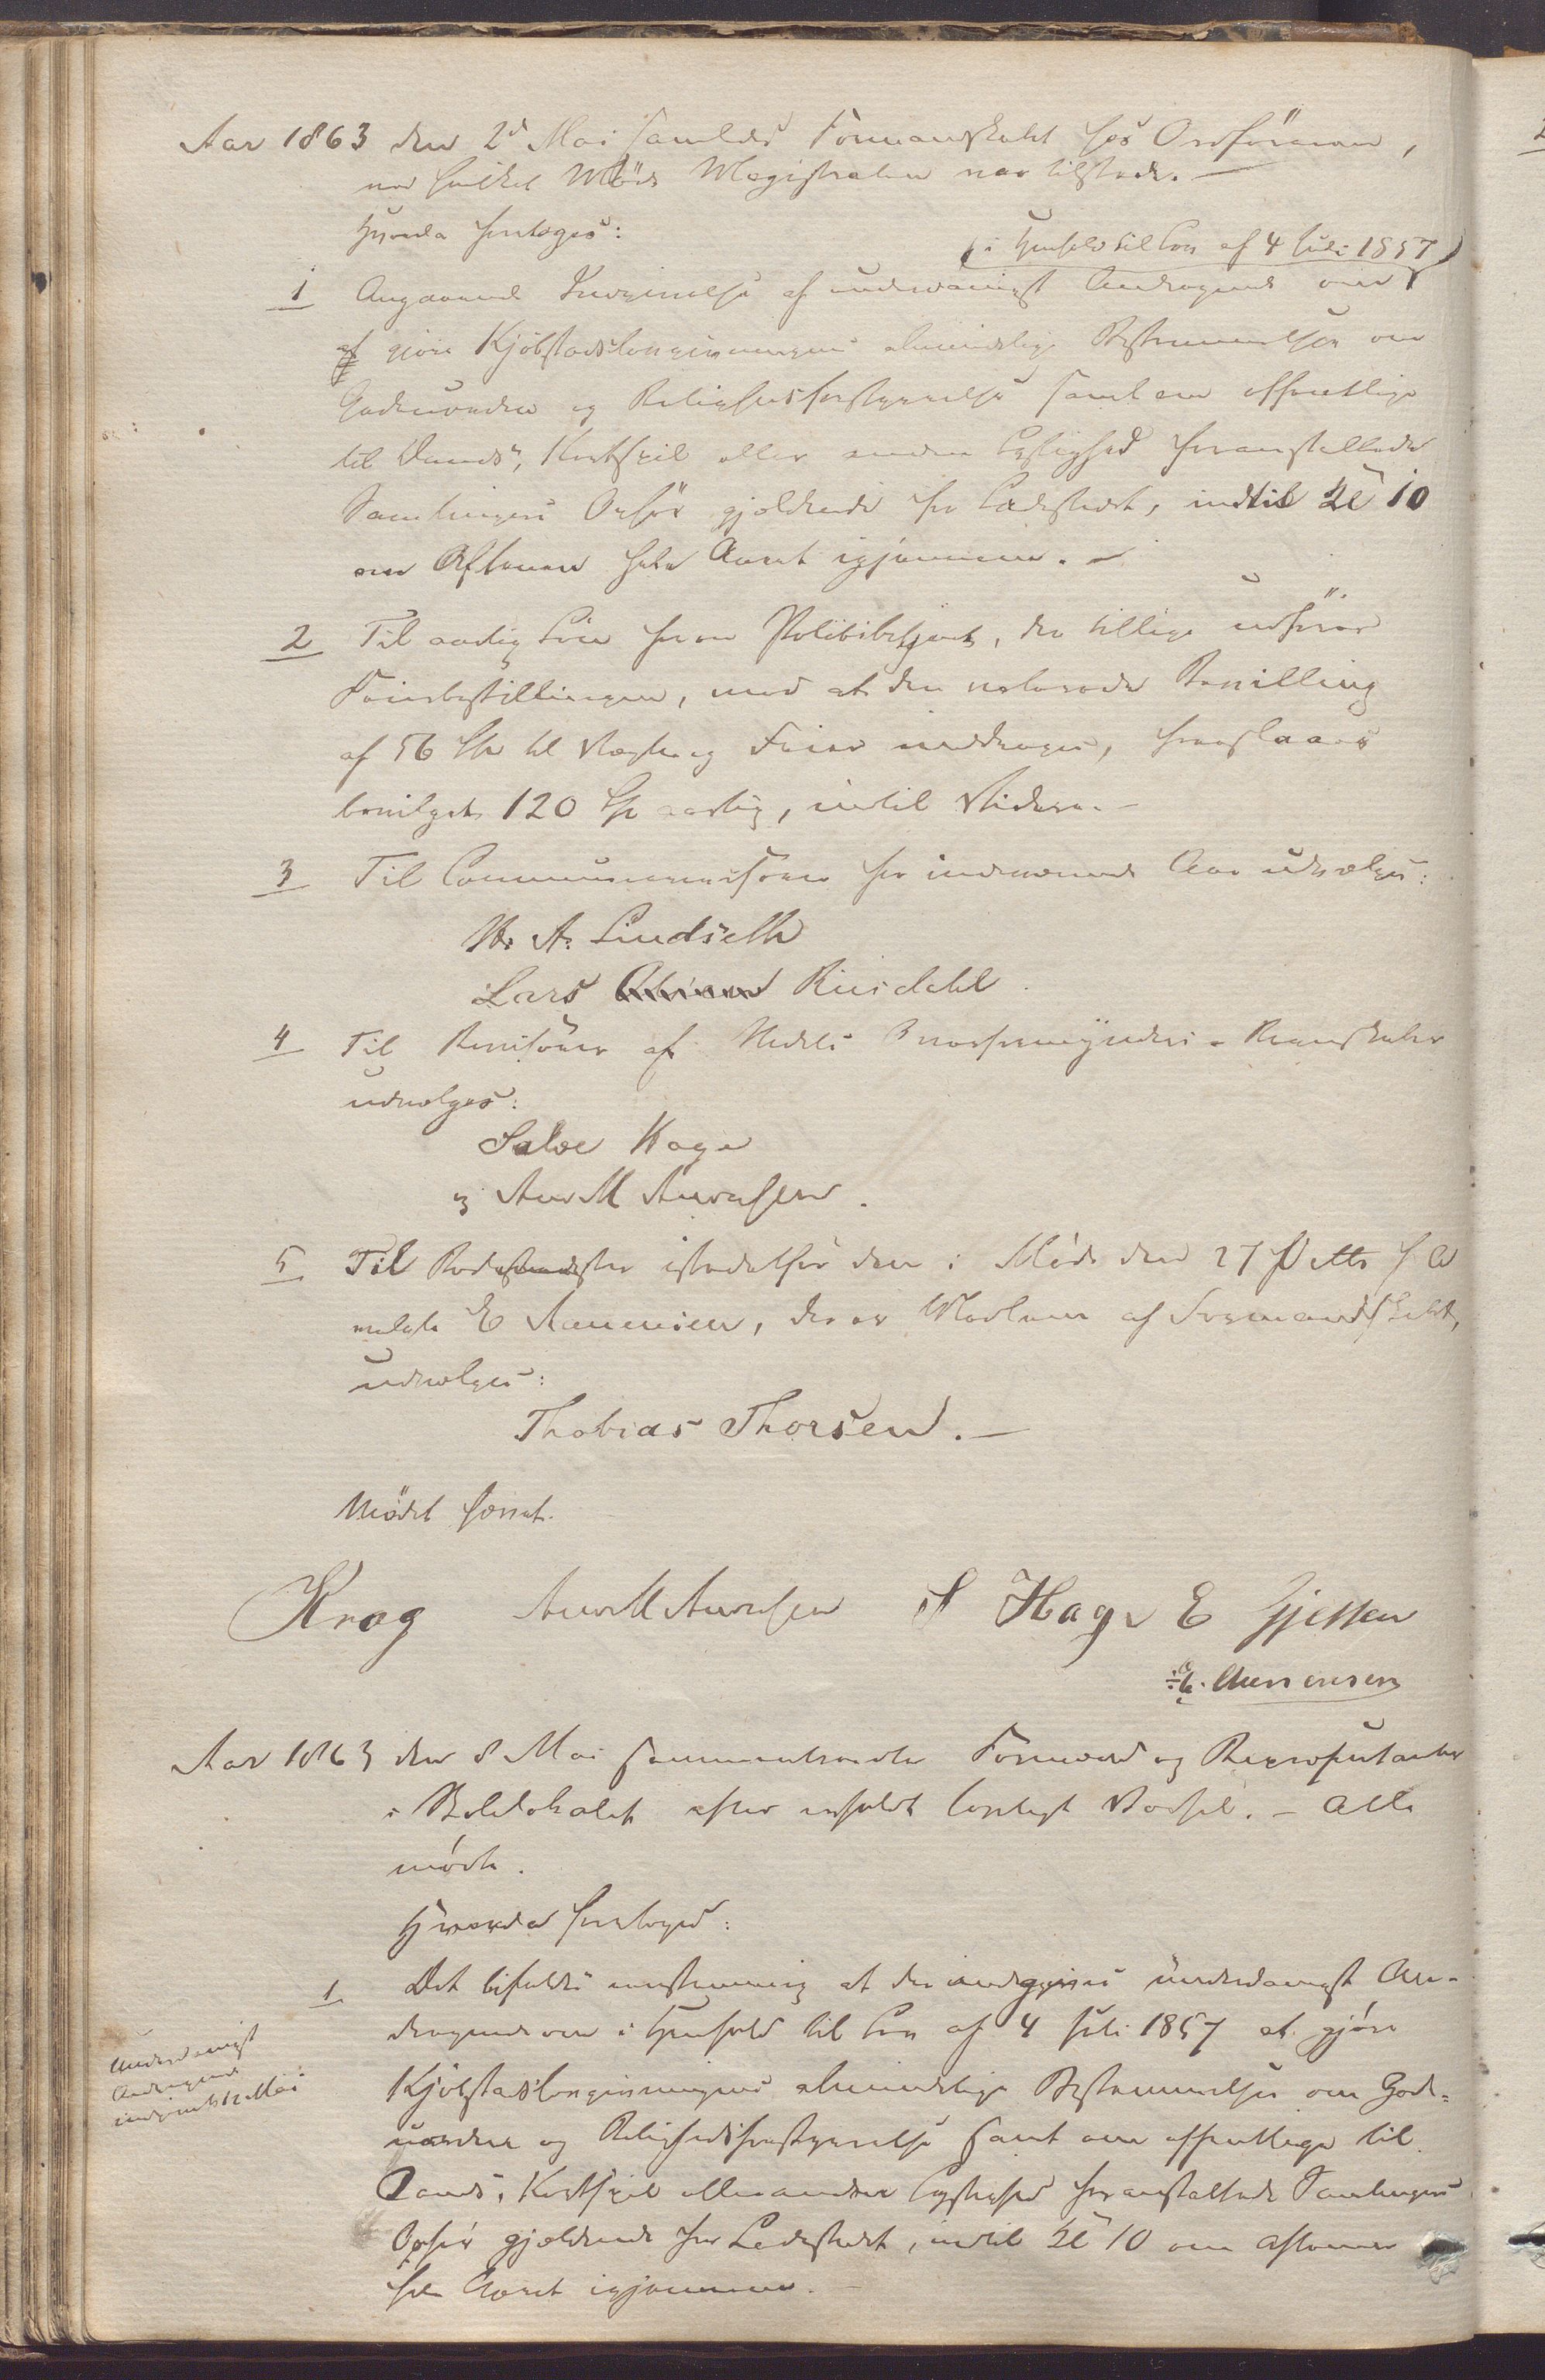 Aar 1863 den 2d Mai samledes Formandskabet hos Ordføreren,
ved hvilket Møde Magistraten var tilstede. —
Hvorda foretoges:
(i Henhold til Lov af 4 Juli 1857)
1 Angaaende Indgivelse af underdanigst Andragende om
at gjøre Kjøbstadslovgivningens almindelige Bestemmelser om
Gadeuorden og Helligdagsforstyrrelse samt om offentlige
til Dands, Kortspil eller anden Lystighed foranstaltede
Samlingers Ophør gjældende for Ladestedet, indtil Kl 10
om Aftenen hele Aaret igjennem. —
2 Til aarlig Løn for en Politibetjent, der tillige udfører
Feierbestillingen, mod at den nuværende Bevilling
af 56 Spd til Vægter og Feier inddrages, foreslaaes
bevilget 120 Spd aarlig, indtil Videre. —
3 Til Communerevisorer for indeværende Aar udvælges:
N. A. Lindseth
Lars Risdahl.
4 Til Revisorer af Overformynderi-Regnskaber
udvælges:
Salve Hage
og And M Andersen.
5 Til Rodemester istedetfor den i Møde den 27
valgte E Aanensen, der er Medlem af Formandskabet,
udvælges:
Thobias Thorsen. —
Mødet hævet.
Krog And M Andersen S Hage E Gjessen
E. Aanensen
Aar 1863 den 8 Mai sammentraadte Formænd og Repræsentanter
i Skolelokalet efter anholdt lovligt Varsel. — Alle
mødte.
Hvorda foretoges:
1 Det bifaldes enstemmig at der indgives underdanigst An-
dragende om i Henhold til Lov af 4 Juli 1857 at gjøre
Kjøbstadslovgivningens almindelige Bestemmelser om Gade-
uorden og Helligdagsforstyrrelse samt om offentlige til
Dands, Kortspil eller anden Lystighed foranstaltede Samlingers
Ophør gjældende for Ladestedet, indtil Kl 10 om Aftenen
hele Aaret igjennem. —
Underdanigst
Andragende
indsendt 12 Mai